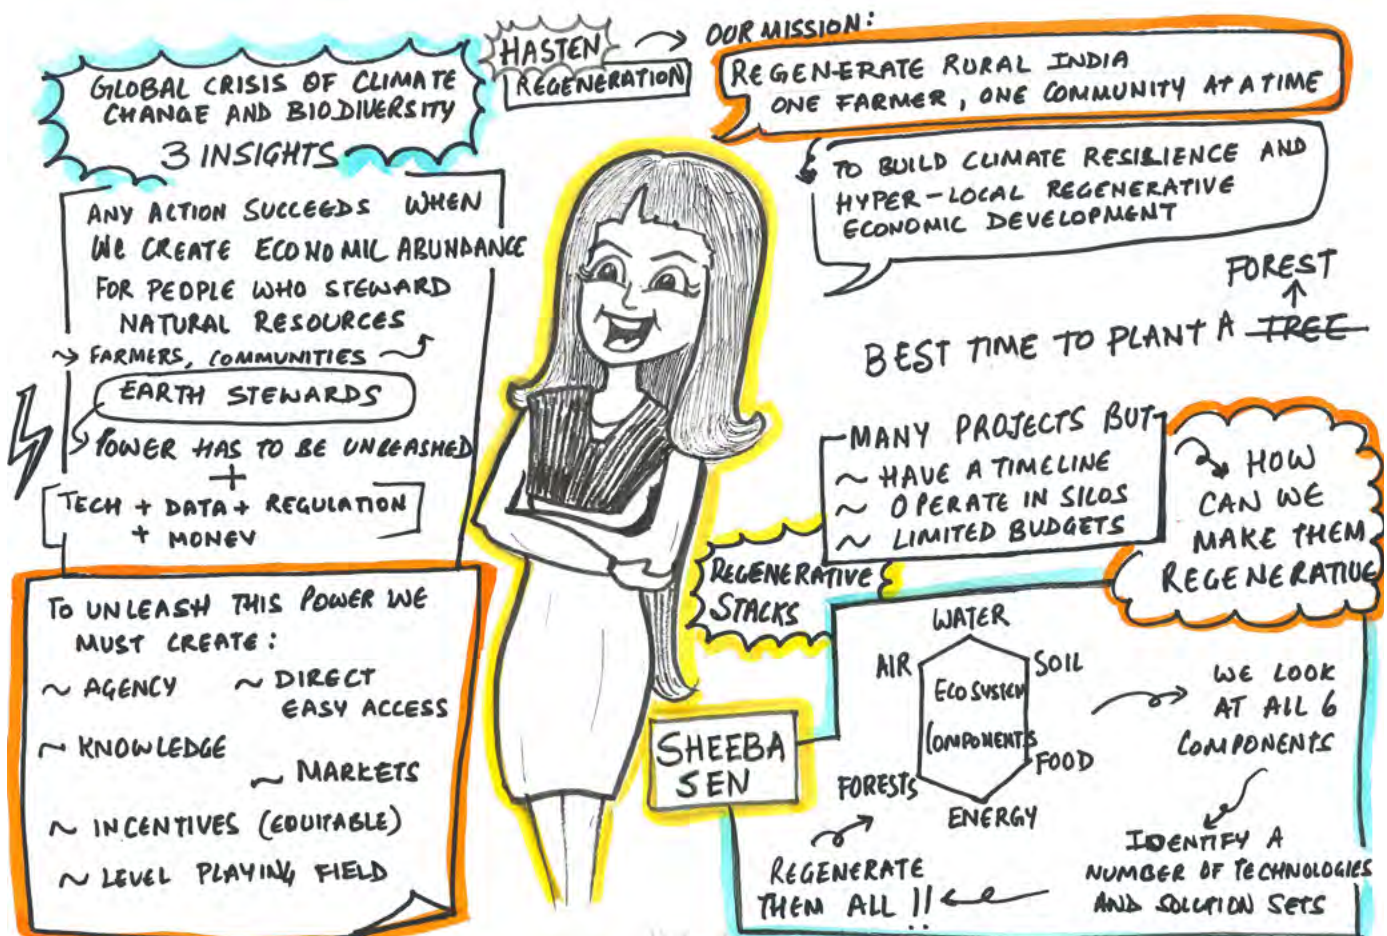 GLOBAL CRISIS OF CLIMATE
CHANGE AND BIODIVERSITY
3 INSIGHTS
ANY ACTION SUCCEEDS WHEN
WE CREATE ECONOMIC ABUNDANCE
FOR PEOPLE WHO STEWARD
NATURAL RESOURCES
~> FARMERS, COMMUNITIES
EARTH STEWARDS
POWER HAS TO BE UNLEASHED
+
[TECH + DATA + REGULATION
+ MONEY]
TO UNLEASH THIS POWER WE
MUST CREATE:
~ AGENCY
~ DIRECT
EASY ACCESS
~ KNOWLEDGE
~ MARKETS
~ INCENTIVES (EQUITABLE)
~ LEVEL PLAYING FIELD
HASTEN
REGENERATION
OUR MISSION:
REGENERATE RURAL INDIA
ONE FARMER, ONE COMMUNITY AT A TIME
TO BUILD CLIMATE RESILIENCE AND
HYPER-LOCAL REGENERATIVE
ECONOMIC DEVELOPMENT
FOREST
BEST TIME TO PLANT A TREE
MANY PROJECTS BUT
~ HAVE A TIMELINE
~ OPERATE IN SILOS
~ LIMITED BUDGETS
HOW
CAN WE
MAKE THEM
REGENERATIVE
REGENERATIVE
STACKS
SHEEBA
SEN
WATER
AIR
SOIL
ECOSYSTEM
COMPONENTS
FORESTS
FOOD
ENERGY
WE LOOK
AT ALL 6
COMPONENTS
IDENTIFY A
NUMBER OF TECHNOLOGIES
AND SOLUTION SETS
REGENERATE
THEM ALL !!